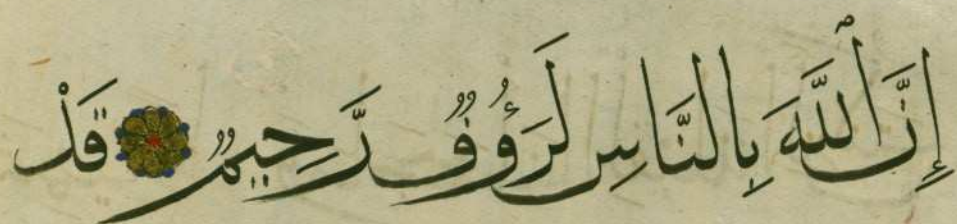 إِنَّ ٱللَّهَ بِالنَّاسِ لَرَؤُفٌ رَّحِيمٌ قَدْ